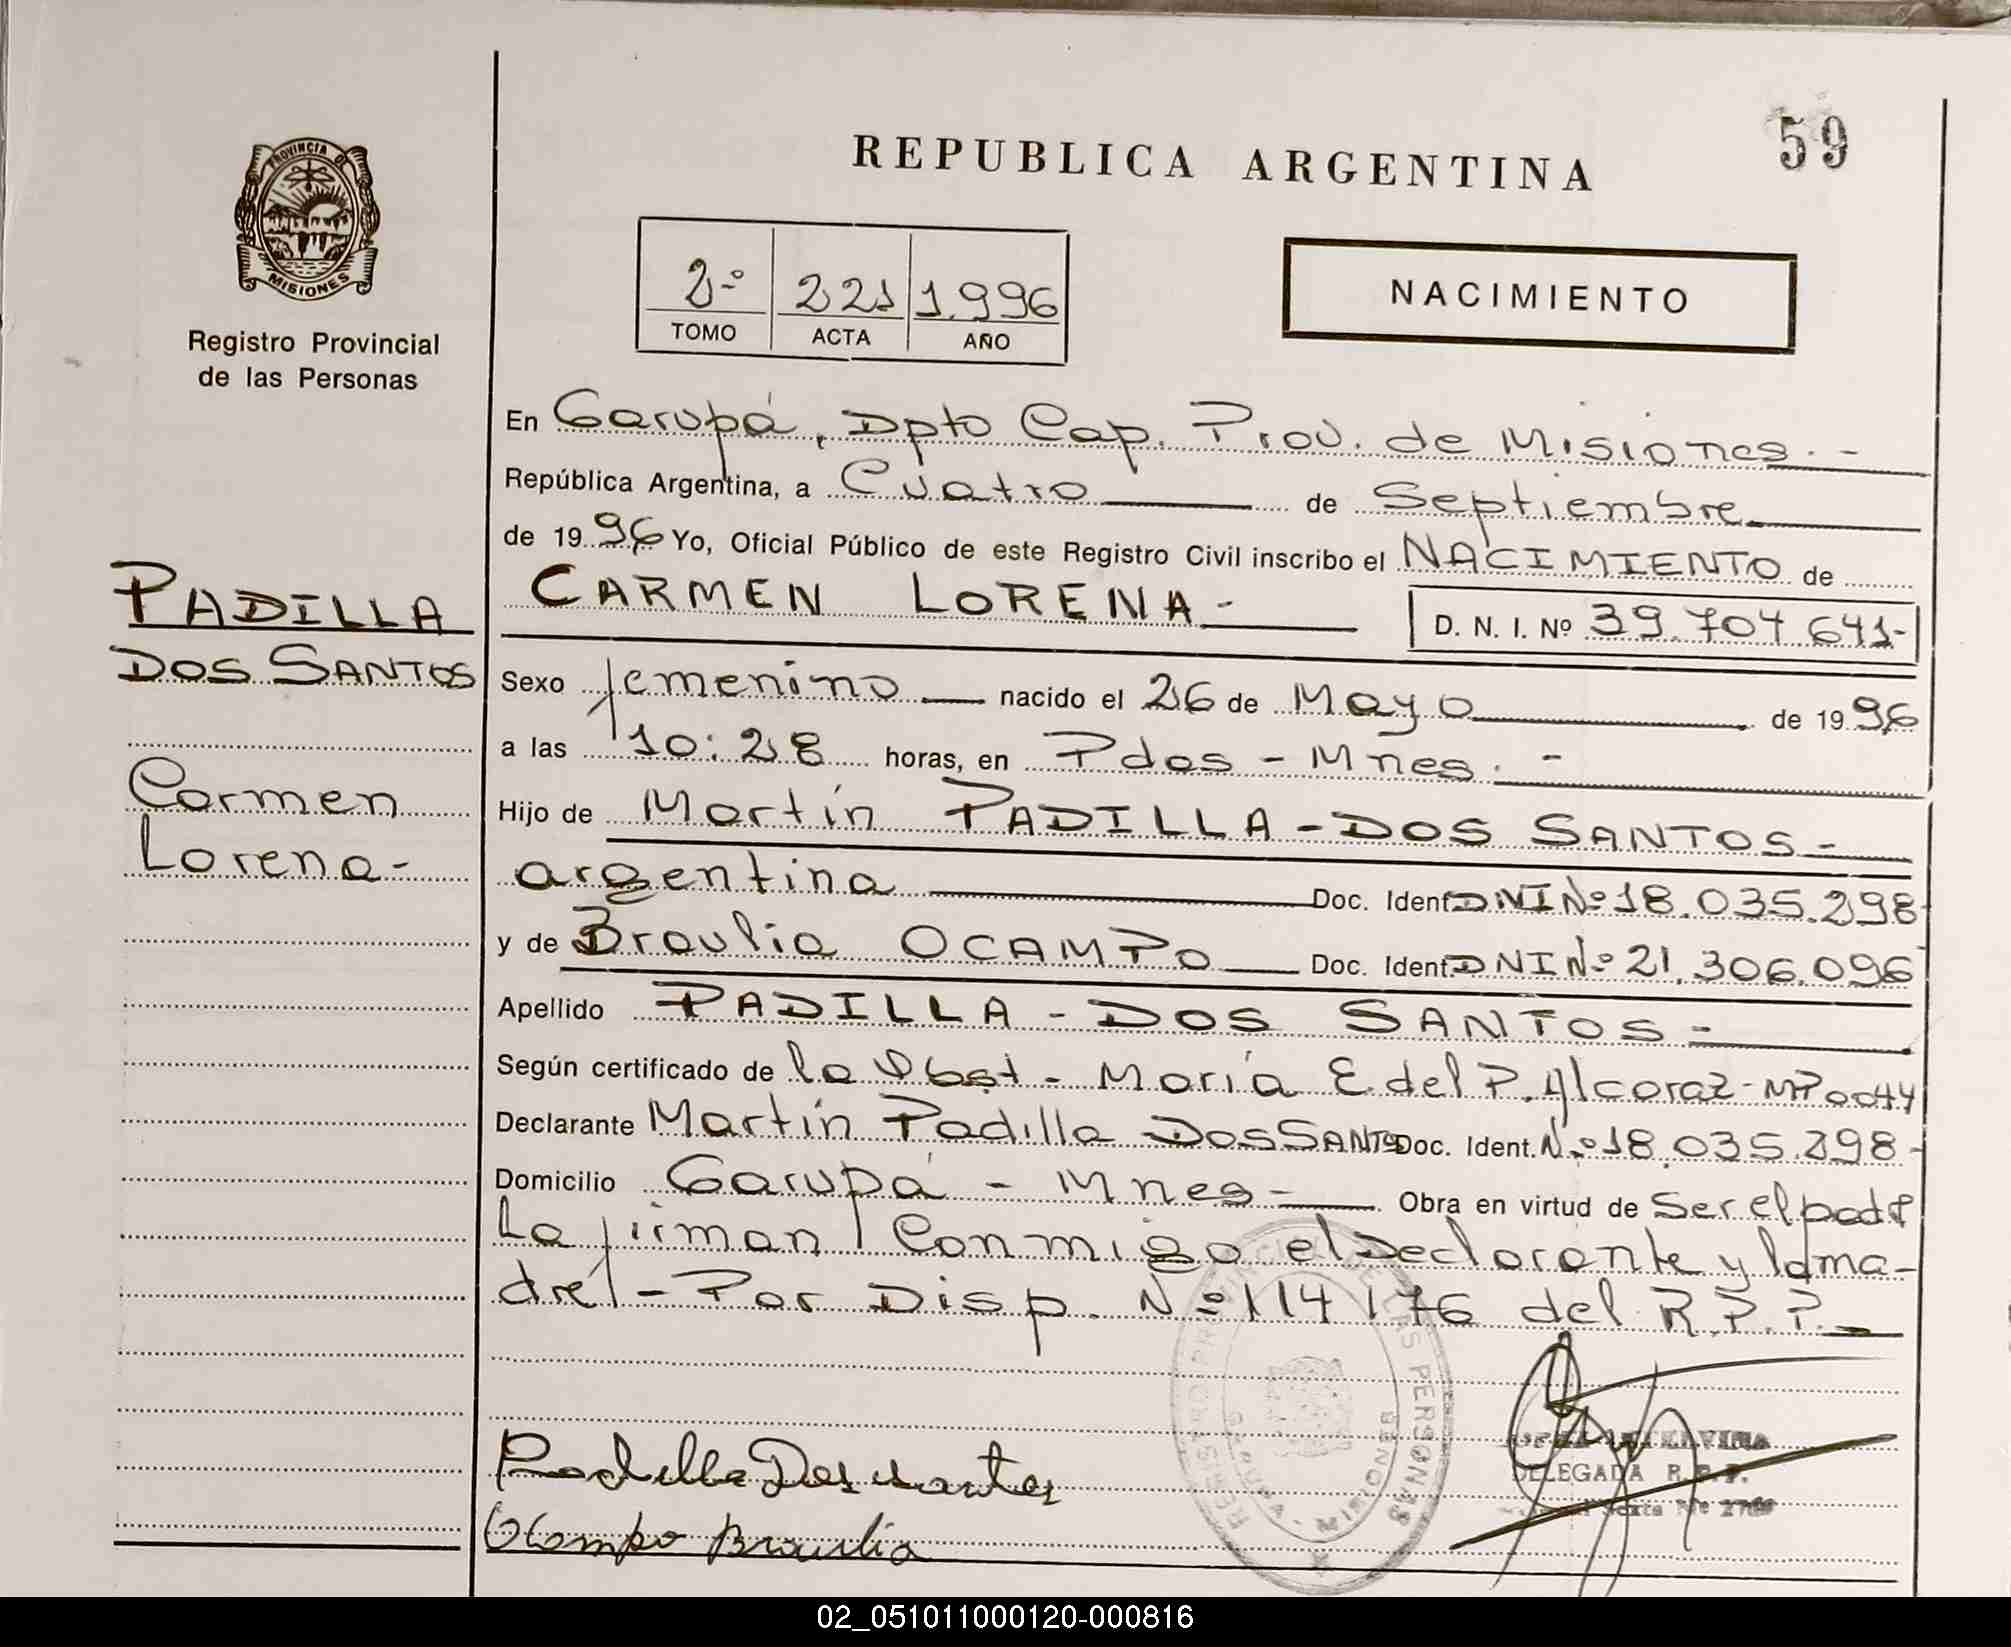 59
REPUBLICA ARGENTINA
PROVINCIA DE
MISIONES
Registro Provincial
de las Personas
2º 221 1.996
TOMO ACTA AÑO
NACIMIENTO
En Garupá, Dpto Cap. Prov. de Misiones. -
República Argentina, a Cuatro de Septiembre
de 1996 Yo, Oficial Público de este Registro Civil inscribo el NACIMIENTO de
CARMEN LORENA - D. N. I. Nº 39.704.641-
PADILLA
DOS SANTOS
Carmen
Lorena -
Sexo femenino nacido el 26 de Mayo de 1996
a las 10:28 horas, en Pdas - Mnes. -
Hijo de Martín PADILLA - DOS SANTOS -
argentina Doc. Ident DNI Nº 18.035.298
y de Braulia OCAMPO Doc. Ident DNI Nº 21.306.096
Apellido PADILLA - DOS SANTOS -
Según certificado de la Obst - María E. del P. Alcaraz - MP
Declarante Martín Padilla Dos SANTOS Doc. Ident. Nº 18.035.298-
Domicilio Garupá - Mnes - Obra en virtud de Ser el padre
La firman Conmigo el Declarante y la ma-
dre - Por Disp. Nº 114/76 del R.P.P. -
REGISTRO PROVINCIAL DE LAS PERSONAS
MISIONES
DELEGADA R.P.P.
Padilla Dos santos
Ocampo Braulia
02_051011000120-000816